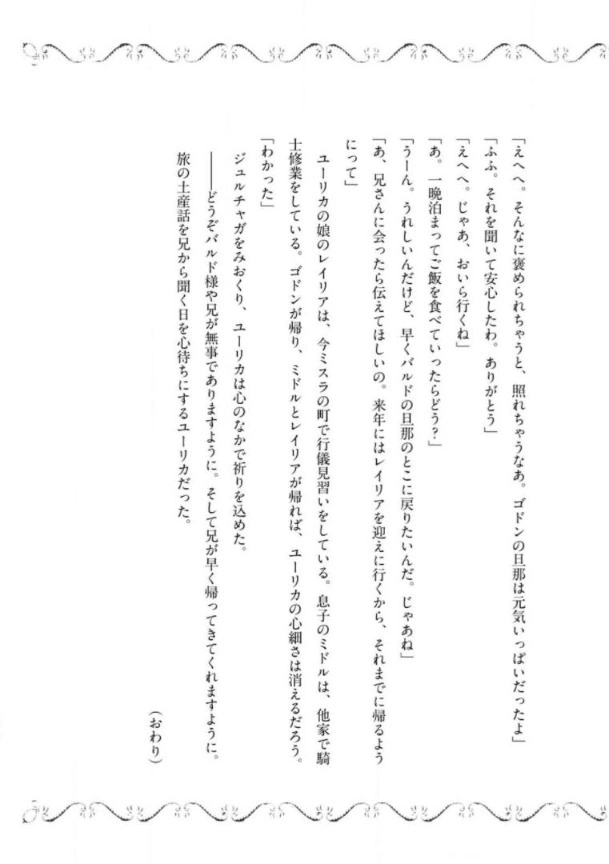 「えへへ。そんなに褒められちゃうと、照れちゃうなあ。ゴドンの旦那は元気いっぱいだったよ」
「ふふ。それを聞いて安心したわ。ありがとう」
「えへへ。じゃあ、おいら行くね」
「あ。一晩泊まってご飯を食べていったらどう？」
「うーん。うれしいんだけど、早くバルドの旦那のとこに戻りたいんだ。じゃあね」
「あ、兄さんに会ったら伝えてほしいの。来年にはレイリアを迎えに行くから、それまでに帰るよう
にって」
ユーリカの娘のレイリアは、今ミスラの町で行儀見習いをしている。息子のミドルは、他家で騎
士修業をしている。ゴドンが帰り、ミドルとレイリアが帰れば、ユーリカの心細さは消えるだろう。
「わかった」
ジュルチャガをみおくり、ユーリカは心のなかで祈りを込めた。
――どうぞバルド様や兄が無事でありますように。そして兄が早く帰ってきてくれますように。
旅の土産話を兄から聞く日を心待ちにするユーリカだった。
（おわり）